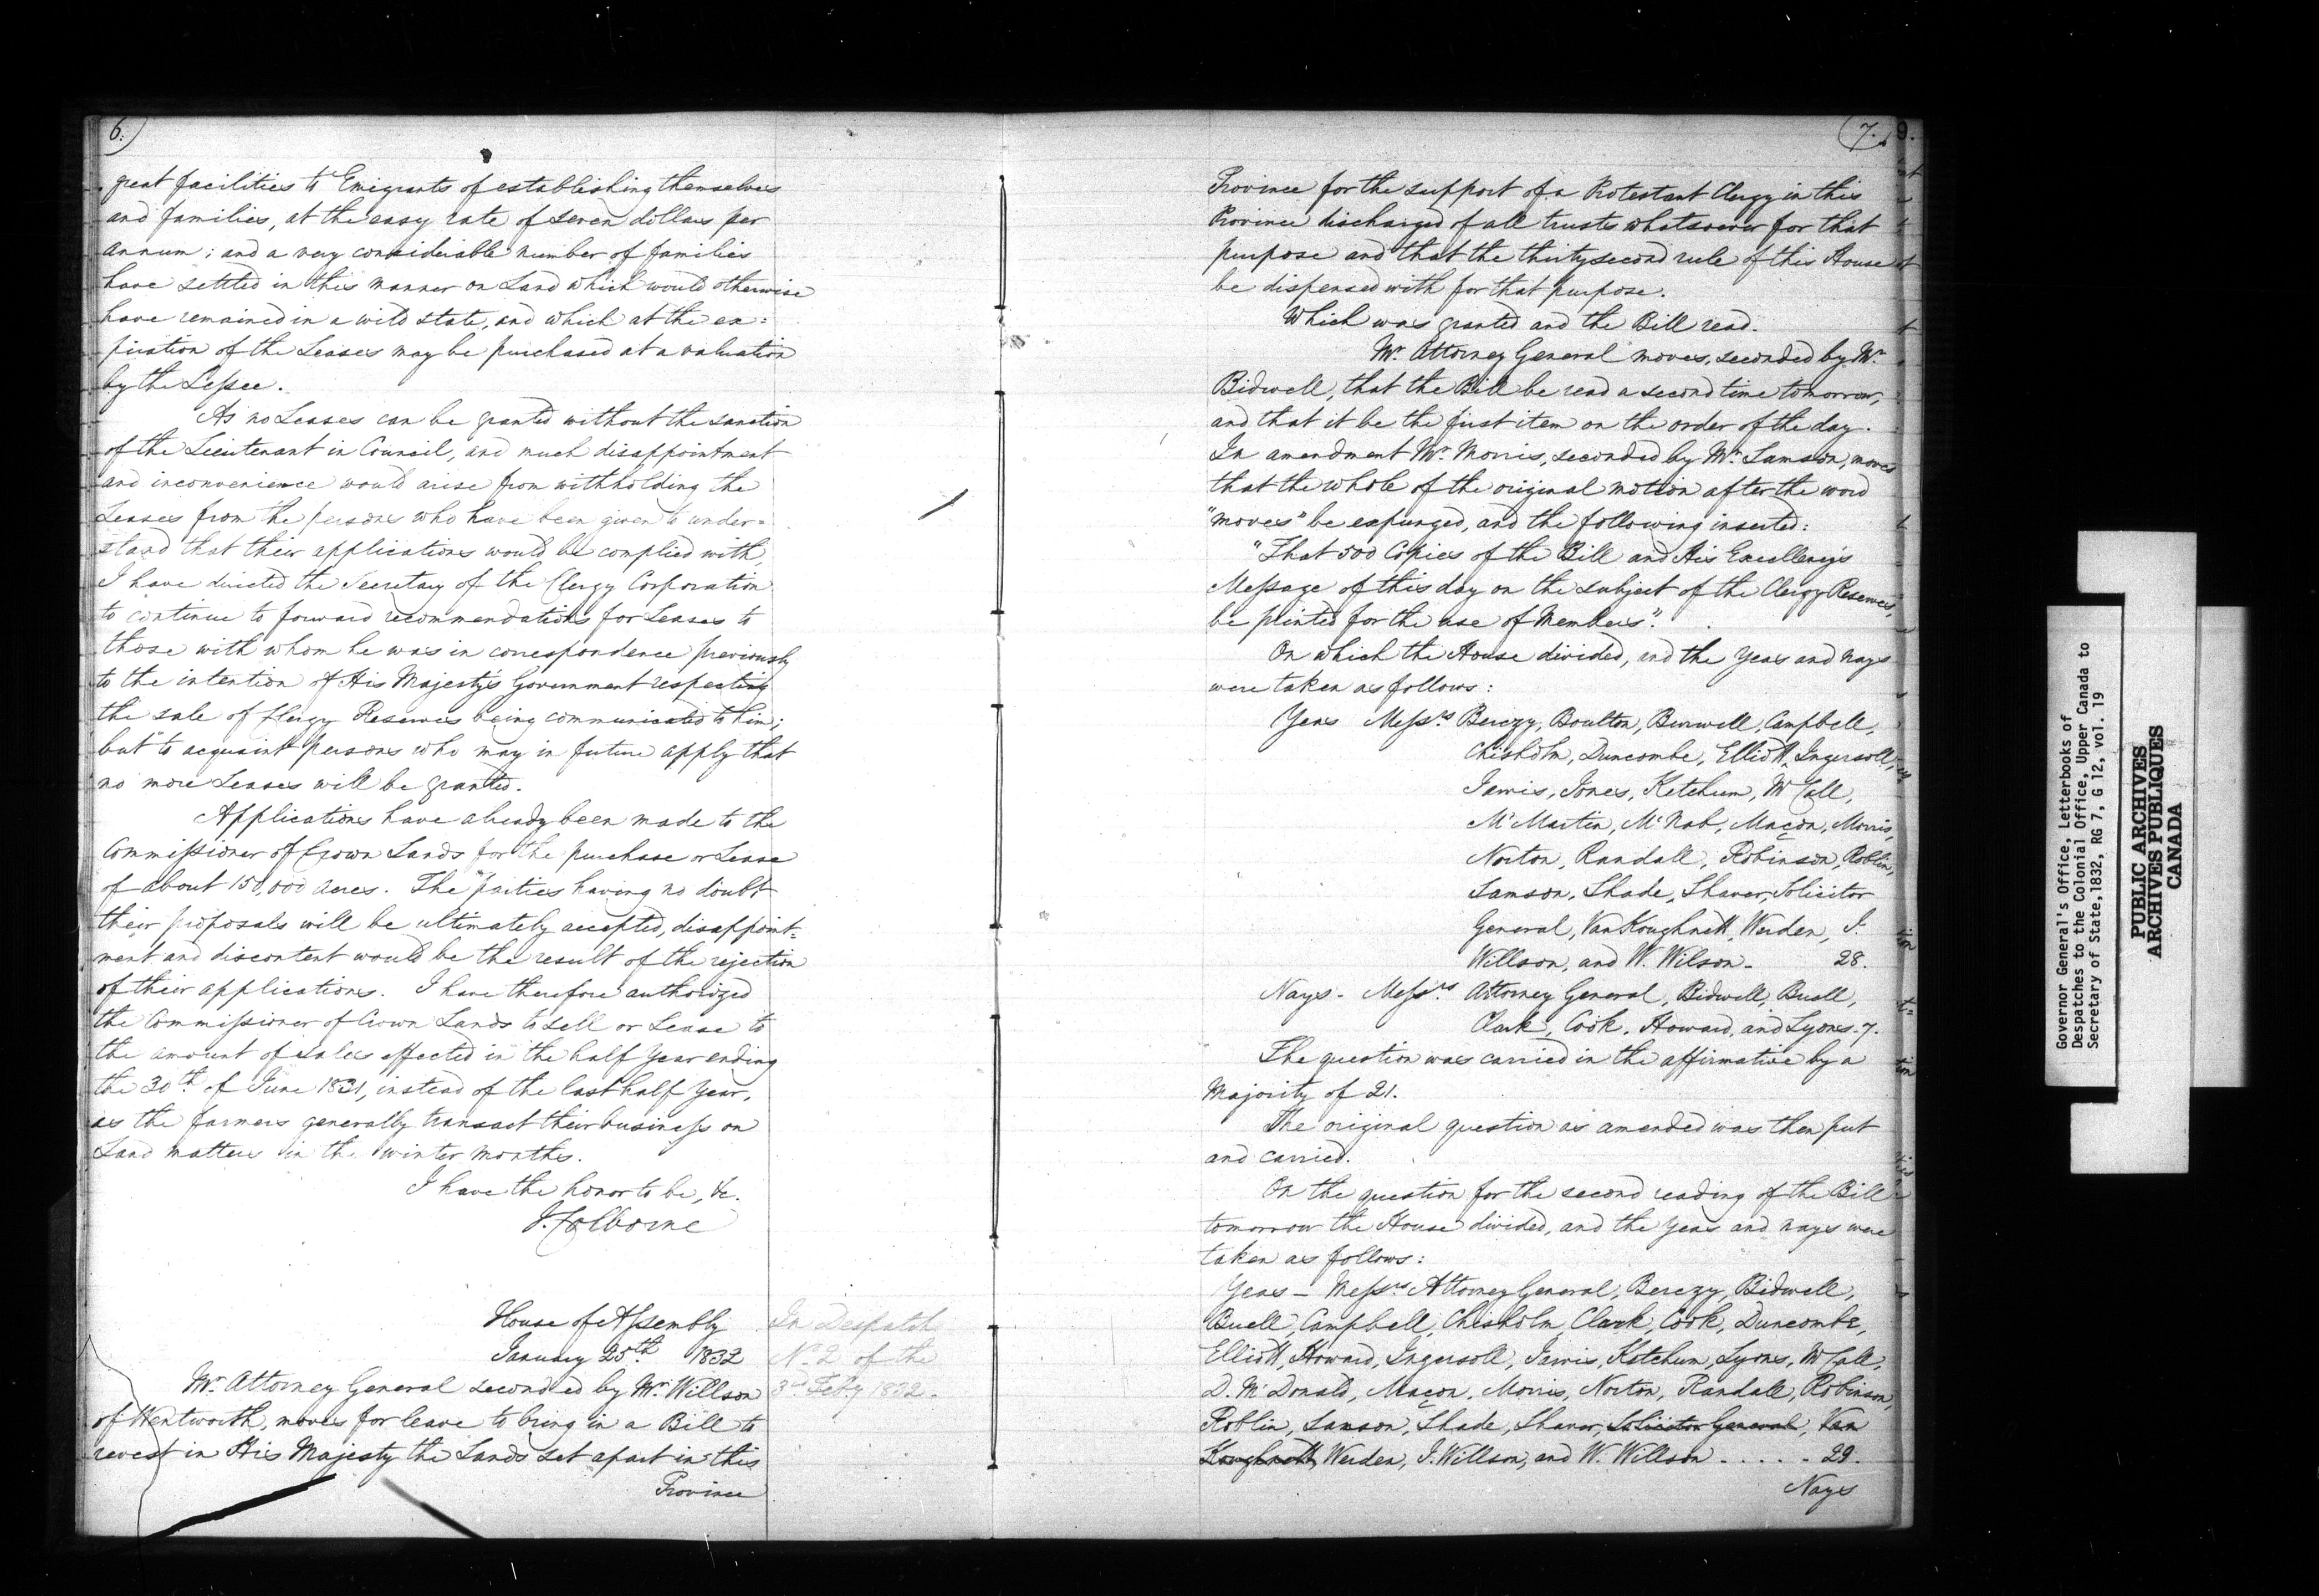 6.
great facilities to Emigrants of establishing themselves
and families, at the easy rate of seven dollars per
annum; and a very considerable number of families
have settled in this manner on Land which would otherwise
have remained in a wild state, and which at the ex=
piration of the Leases may be purchased at a valuation
by the Lessee.
As no Leases can be granted without the sanction
of the Lieutenant in Council, and much disappointment
and inconvenience would arise from withholding the
Leases from the persons who have been given to under=
stand that their applications would be complied with,
I have directed the Secretary of the Clergy Corporation
to continue to forward recommendations for Leases to
those with whom he was in correspondence previously
to the intention of His Majesty's Government respecting
the sale of Clergy Reserves being communicated to him;
but to acquaint persons who may in future apply that
no more Leases will be granted.
Applications have already been made to the
Commissioner of Crown Lands for the purchase or Lease
of about 150,000 acres. The parties having no doubt
their proposals will be ultimately accepted, disappoint=
ment and discontent would be the result of the rejection
of their applications. I have therefore authorized
the Commissioner of Crown Lands to sell or Lease to
the amount of sales effected in the half Year ending
the 30th of June 1831, instead of the last half Year,
as the farmers generally transact their business on
Land matters in the winter months.
I have the honor to be, &c.
J. Colborne
House of Assembly
January 25th 1832
In Despatch
No. 2 of the
3d Feby 1832.
Mr. Attorney General seconded by Mr. Willson
of Wentworth, moves for leave to bring in a Bill to
revest in His Majesty the Lands set apart in this
Province
7.
9.
Province for the support of a Protestant Clergy in this
Province discharged of all trusts whatsoever for that
purpose and that the thirty second rule of this House
be dispensed with for that purpose.
Which was granted and the Bill read.
Mr. Attorney General moves, seconded by Mr.
Bidwell, that the Bill be read a second time tomorrow,
and that it be the first item on the order of the day.
In amendment Mr. Morris, seconded by Mr. Samson, moves
that the whole of the original motion after the word
"moves" be expunged, and the following inserted:
"That 500 Copies of the Bill and His Excellency's
Message of this day on the subject of the Clergy Reserves,
be printed for the use of Members".
On which the House divided, and the Yeas and nays
were taken as follows:
Yeas Messrs Berczy, Boulton, Burwell, Campbell,
Chisholm, Duncombe, Elliott, Ingersoll,
Jarvis, Jones, Ketchum, McCall,
McMartin, McNab, Maçon, Morris,
Norton, Randall, Robinson, Roblin,
Samson, Shade, Shaver, Solicitor
General, VanKoughnett, Werden, J.
Willson, and W. Wilson - 28.
Nays - Messrs Attorney General, Bidwell, Buell,
Clark, Cook, Howard, and Lyons - 7.
The question was carried in the affirmative by a
Majority of 21.
The original question as amended was then put
and carried.
On the question for the second reading of the Bill
tomorrow the House divided, and the yeas and nays were
taken as follows:
Yeas - Messrs Attorney General, Berczy, Bidwell,
Buell, Campbell, Chisholm, Clark, Cook, Duncombe,
Elliott, Howard, Ingersoll, Jarvis, Ketchum, Lyons, McCall,
D. McDonald, Maçon, Morris, Norton, Randall, Robinson,
Roblin, Samson, Shade, Shaver, Solicitor General, Van
Koughnett, Werden, J. Willson, and W. Willson . . . . . 29.
Nays
Governor General's Office, Letterbooks of
Despatches to the Colonial Office, Upper Canada to
Secretary of State, 1832, RG 7, G 12, vol. 19
PUBLIC ARCHIVES
ARCHIVES PUBLIQUES
CANADA